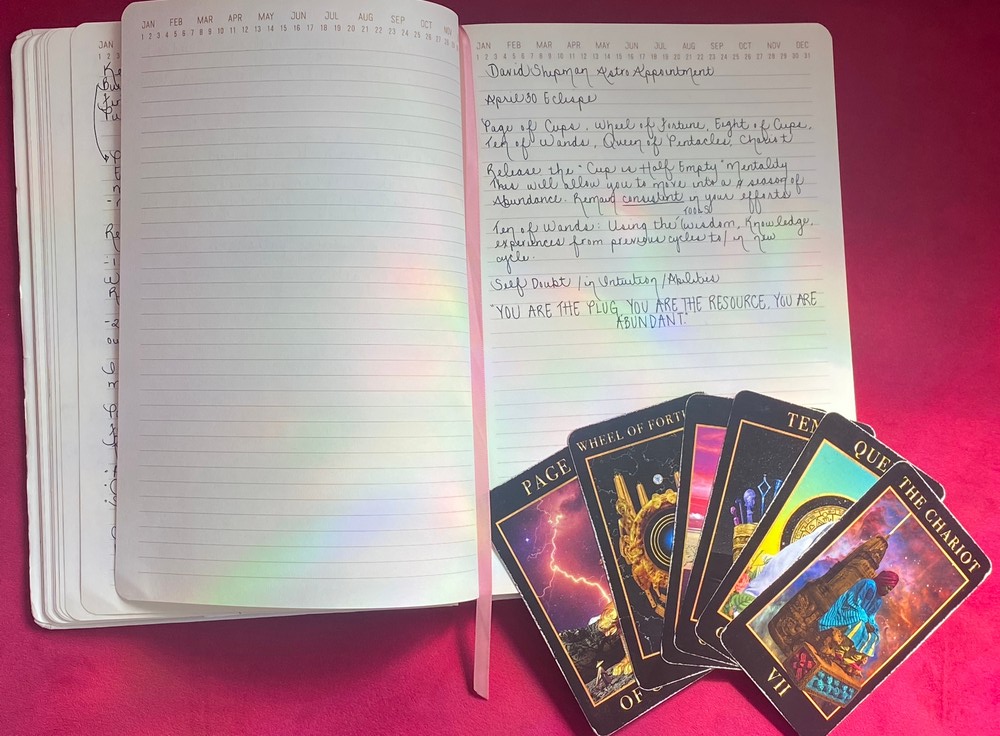 JAN FEB MAR APR MAY JUN JUL AUG SEP OCT NOV
1 2 3 4 5 6 7 8 9 10 11 12 13 14 15 16 17 18 19 20 21 22 23 24 25 26 27 28
JAN
JAN FEB MAR APR MAY JUN JUL AUG SEP OCT NOV DEC
1 2 3 4 5 6 7 8 9 10 11 12 13 14 15 16 17 18 19 20 21 22 23 24 25 26 27 28 29 30 31
David Shipman Astro Appointment
April 30 Eclispe
Page of Cups, Wheel of Fortune, Eight of Cups,
Ten of Wands, Queen of Pentacles, Chariot
Release the "Cup is Half Empty" Mentality
This will allow you to move into a season of
Abundance. Remain consistent in your efforts
TOOLS
Ten of Wands: Using the Wisdom, Knowledge,
experiences from previous cycles to/in new
cycle.
Self Doubt /in Intuition/Abilities
"YOU ARE THE PLUG, YOU ARE THE RESOURCE, YOU ARE
ABUNDANT."
PAGE
OF
WHEEL OF FORT
TEN
QUE
THE CHARIOT
VII